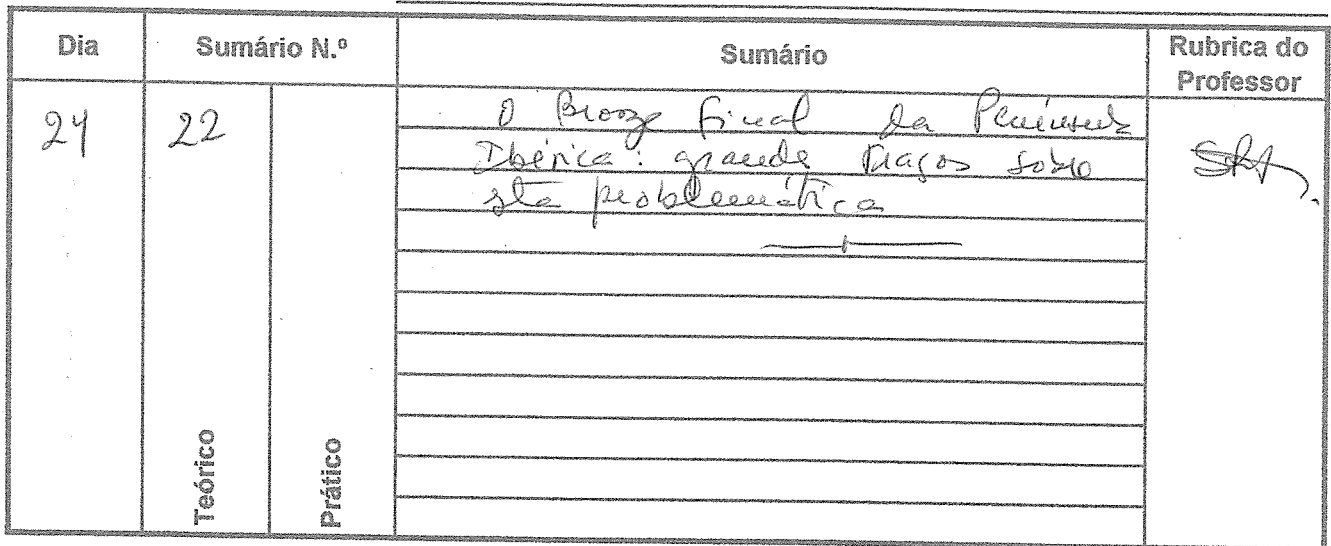 Dia Sumário N.º Sumário Rubrica do Professor
24 22
O Bronze Final da Península
Ibérica: grande traços sobre
sta problemática
Teórico Prático